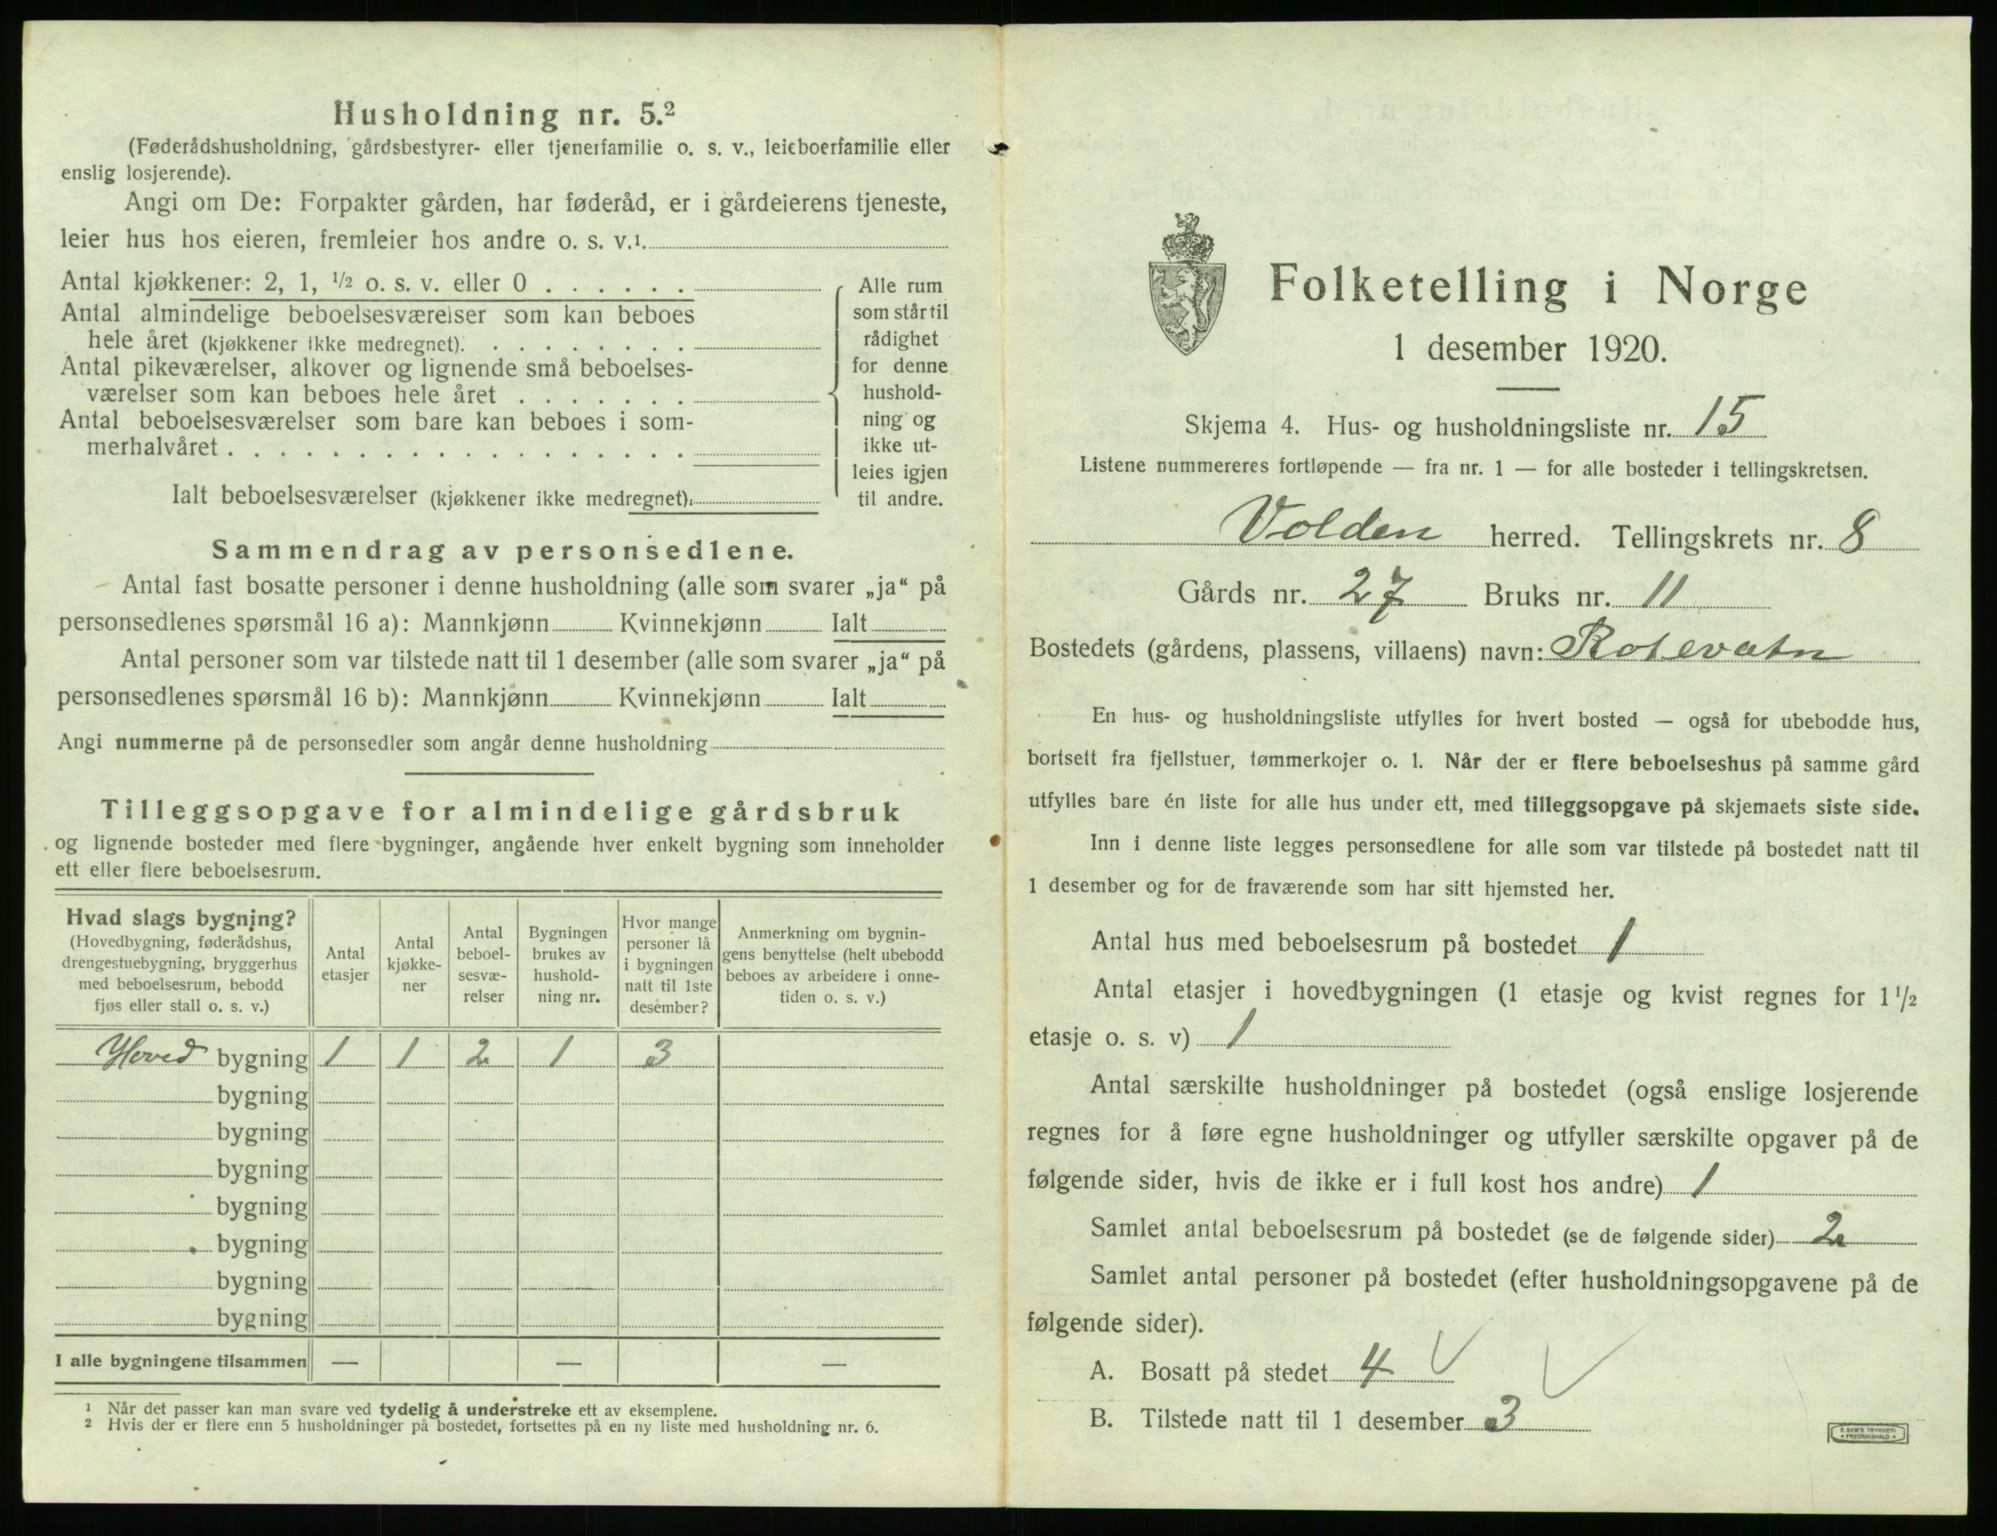 Husholdning nr. 5.²
(Føderådshusholdning, gårdsbestyrer- eller tjenerfamilie o. s. v., leieboerfamilie eller
enslig losjerende).
Angi om De: Forpakter gården, har føderåd, er i gårdeierens tjeneste,
leier hus hos eieren, fremleier hos andre o. s. v.¹
Antal kjøkkener: 2, 1, ½ o. s. v. eller 0
Antal almindelige beboelsesværelser som kan beboes
hele året (kjøkkener ikke medregnet)
Antal pikeværelser, alkover og lignende små beboelses-
værelser som kan beboes hele året
Antal beboelsesværelser som bare kan beboes i som-
merhalvåret
Ialt beboelsesværelser (kjøkkener ikke medregnet):
Alle rum
som står til
rådighet
for denne
hushold-
ning og
ikke ut-
leies igjen
til andre.
Sammendrag av personsedlene.
Antal fast bosatte personer i denne husholdning (alle som svarer „ja“ på
personsedlenes spørsmål 16 a): Mannkjønn Kvinnekjønn Ialt
Antal personer som var tilstede natt til 1 desember (alle som svarer „ja“ på
personsedlenes spørsmål 16 b): Mannkjønn Kvinnekjønn Ialt
Angi nummerne på de personsedler som angår denne husholdning
Tilleggsopgave for almindelige gårdsbruk
og lignende bosteder med flere bygninger, angående hver enkelt bygning som inneholder
ett eller flere beboelsesrum.
Hvad slags bygning?
(Hovedbygning, føderådshus,
drengestuebygning, bryggerhus
med beboelsesrum, bebodd
fjøs eller stall o. s. v.)
Antal
etasjer
Antal
kjøkke-
ner
Antal
beboel-
sesvæ-
relser
Bygningen
brukes av
hushold-
ning nr.
Hvor mange
personer lå
i bygningen
natt til 1ste
desember?
Anmerkning om bygnin-
gens benyttelse (helt ubebodd
beboes av arbeidere i onne-
tiden o. s. v.)
Hoved bygning 1 1 2 1 3
bygning
bygning
bygning
bygning
bygning
bygning
bygning
I alle bygningene tilsammen — — —
¹ Når det passer kan man svare ved tydelig å understreke ett av eksemplene.
² Hvis der er flere enn 5 husholdninger på bostedet, fortsettes på en ny liste med husholdning nr. 6.
Folketelling i Norge
1 desember 1920.
Skjema 4. Hus- og husholdningsliste nr. 15
Listene nummereres fortløpende — fra nr. 1 — for alle bosteder i tellingskretsen.
Volden herred. Tellingskrets nr. 8
Gårds nr. 27 Bruks nr. 11
Bostedets (gårdens, plassens, villaens) navn: Rotevatn
En hus- og husholdningsliste utfylles for hvert bosted — også for ubebodde hus,
bortsett fra fjellstuer, tømmerkojer o. l. Når der er flere beboelseshus på samme gård
utfylles bare én liste for alle hus under ett, med tilleggsopgave på skjemaets siste side.
Inn i denne liste legges personsedlene for alle som var tilstede på bostedet natt til
1 desember og for de fraværende som har sitt hjemsted her.
Antal hus med beboelsesrum på bostedet 1
Antal etasjer i hovedbygningen (1 etasje og kvist regnes for 1 ½
etasje o. s. v) 1
Antal særskilte husholdninger på bostedet (også enslige losjerende
regnes for å føre egne husholdninger og utfyller særskilte opgaver på de
følgende sider, hvis de ikke er i full kost hos andre) 1
Samlet antal beboelsesrum på bostedet (se de følgende sider) 2
Samlet antal personer på bostedet (efter husholdningsopgavene på de
følgende sider).
A. Bosatt på stedet 4
B. Tilstede natt til 1 desember 3
E. SEM'S TRYKKERI
• FREDRIKSHALD •